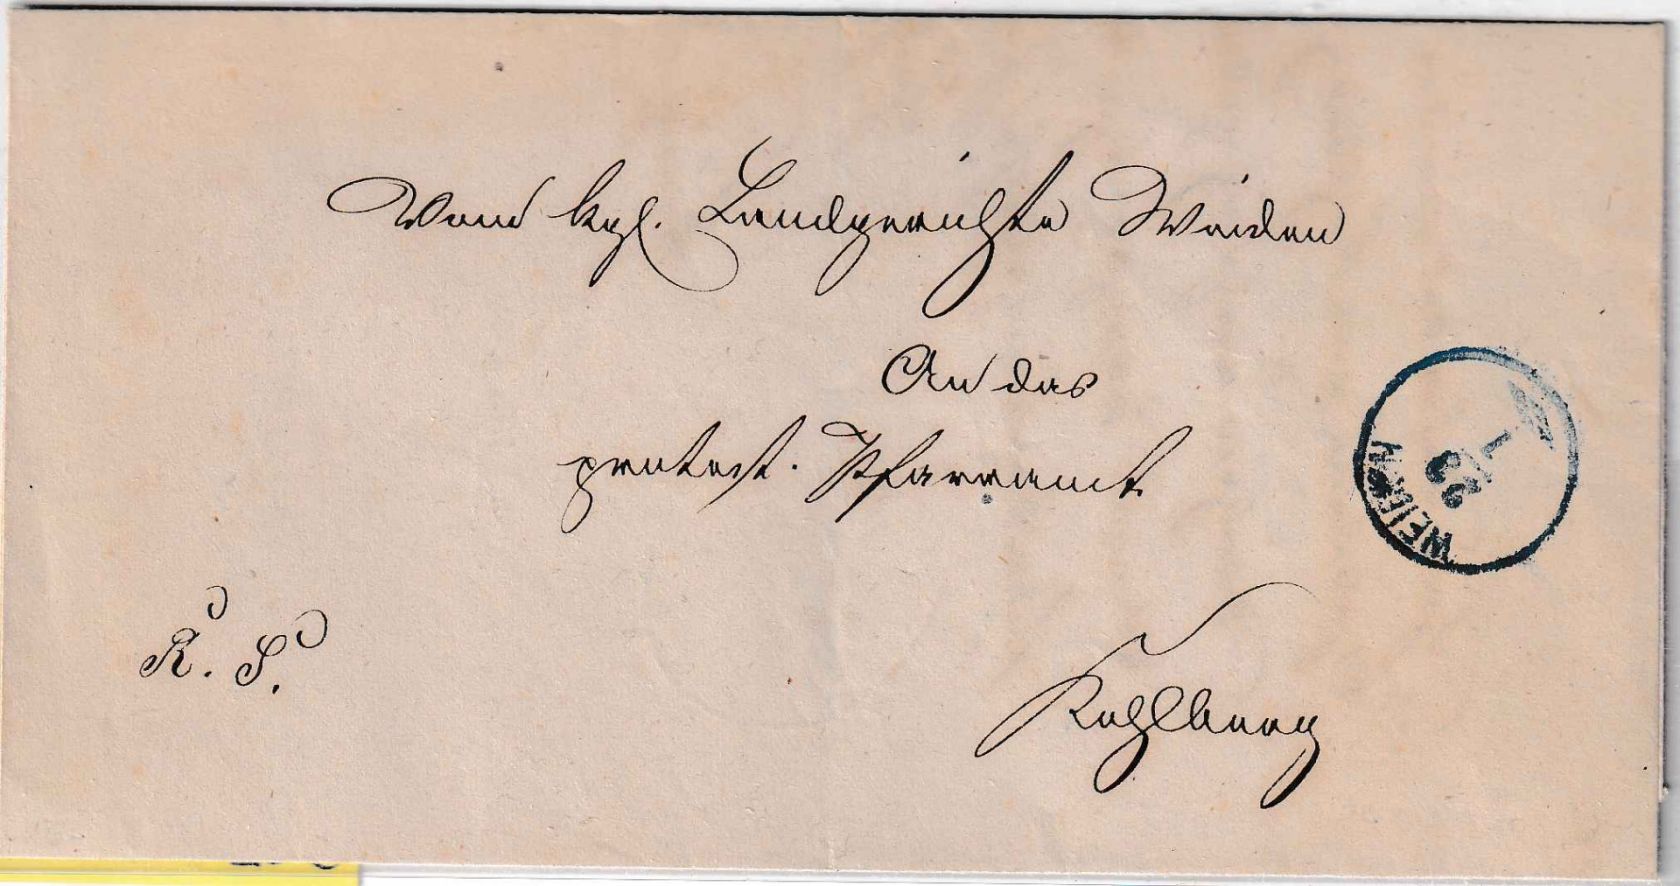 Vom kgl. Landgerichte Weiden
An das
protest. Pfarramt
WEIDEN
22
1
R. S.
Kohlberg